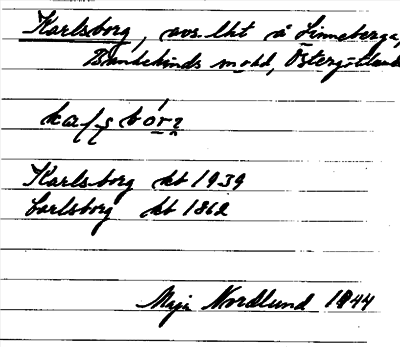 Karlsborg, avs. lht å Linneberga,
Bankekinds mskd, Östergötland
Karlsborg kb 1939
Carlsborg kb 1862
Maja Nordlund 1944